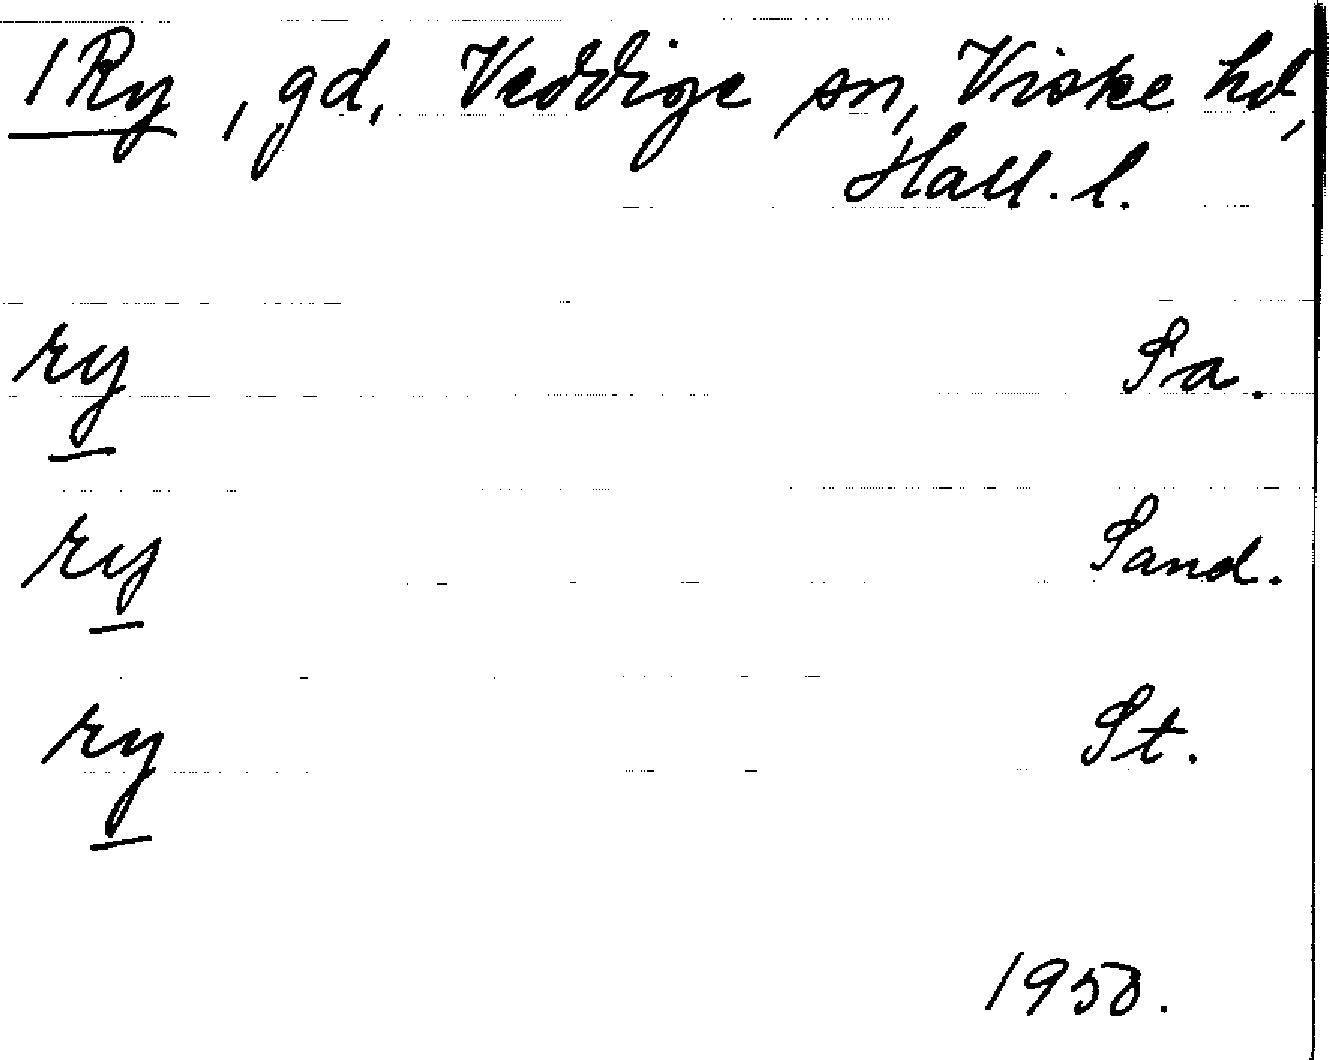 1 Ry, gd, Veddige sn, Viske hd,
Hall. l.
ry Sa.
ry Sand.
ry St.
1950.